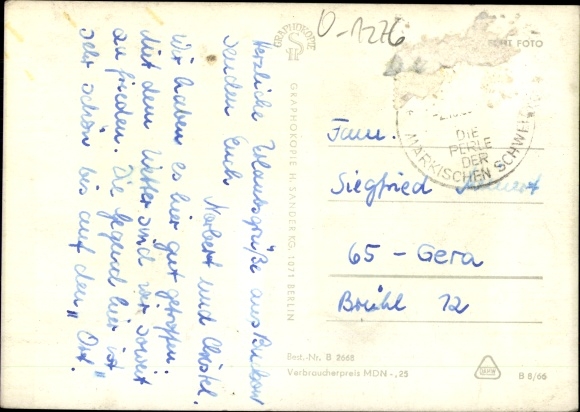 Herzliche Urlaubsgrüße aus Buckow
senden Euch Norbert und Christel.
Wir haben es hier gut getroffen.
Mit dem Wetter sind wir soweit
zufrieden. Die Gegend hier ist
sehr schön bis auf den „Ort".
GRAPHOKOPIE
GRAPHOKOPIE H. SANDER KG, 1071 BERLIN
O-1276
ECHT FOTO
DIE
PERLE
DER
MÄRKISCHEN SCHWEIZ
Fam.
Siegfried
65 - Gera
Brühl 12
Best.-Nr. B 2668
Verbraucherpreis MDN -,25
B 8/66